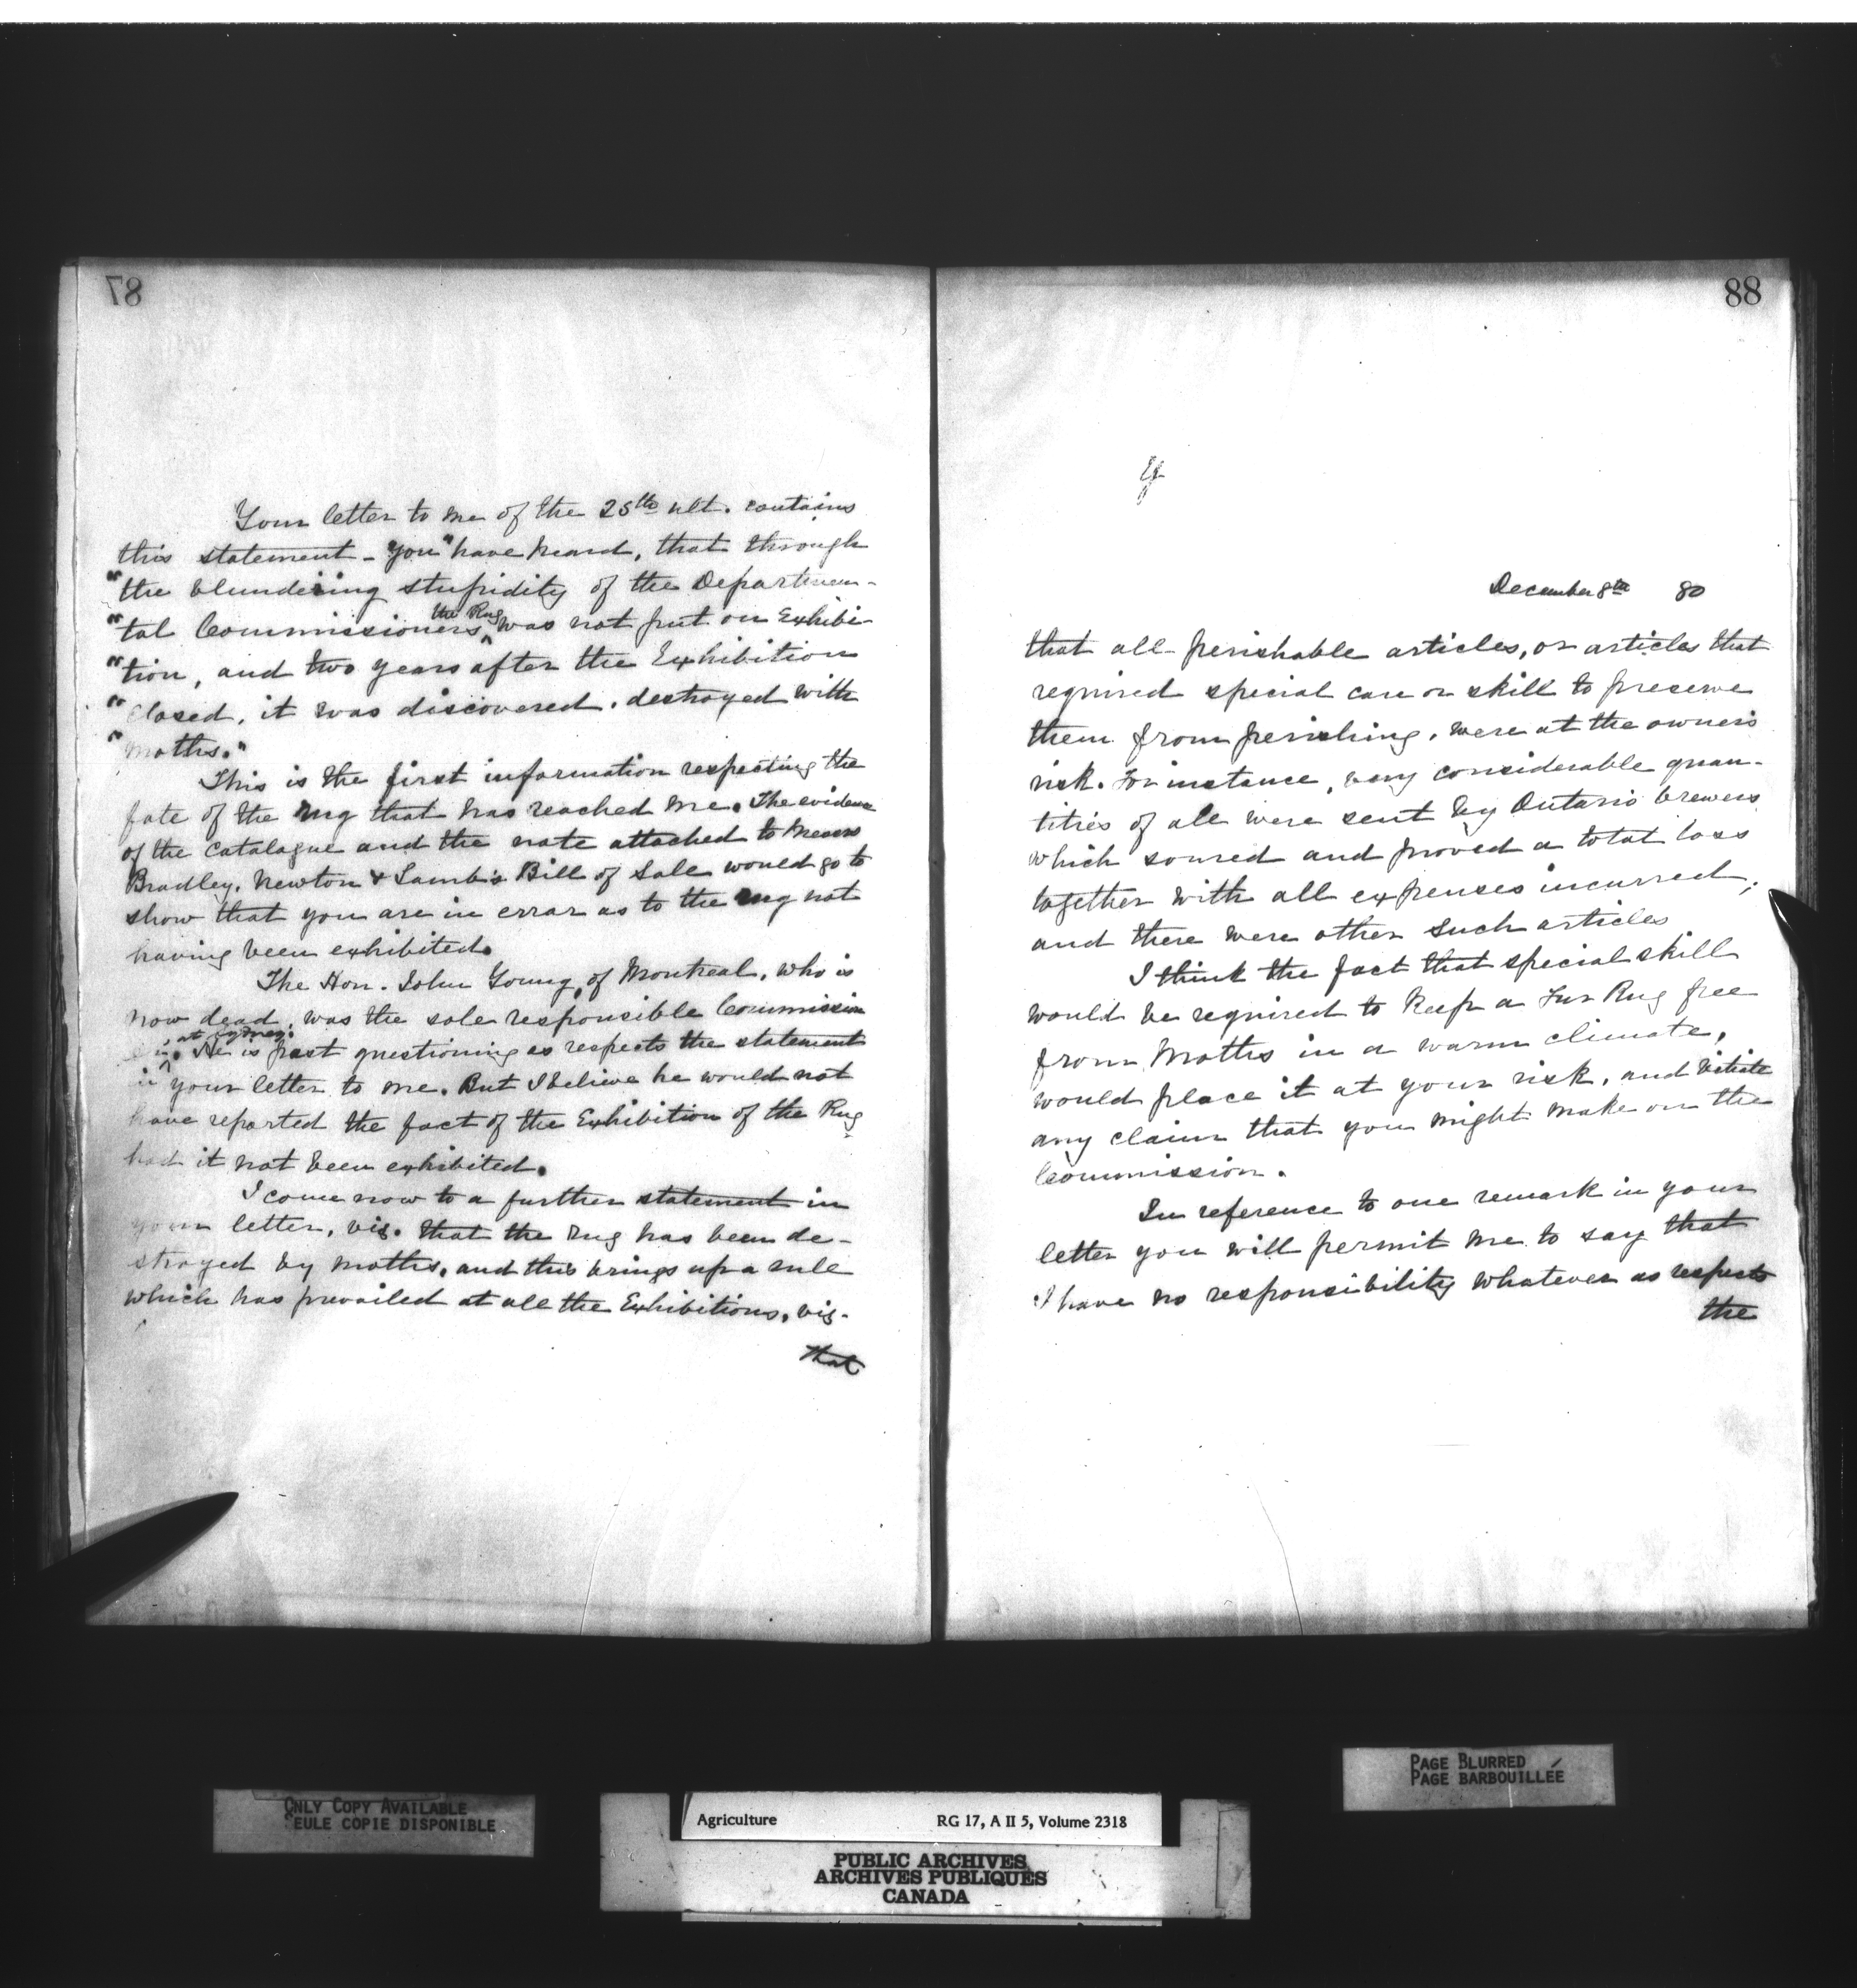 87
Your letter to me of the 25th ult. contains
this statement - "you" have heard, that through
"the blundering stupidity of the Departmen-
"tal Commissioners the Rug was not put on Exhibi-
"tion, and two years after the Exhibition
"closed, it was discovered, destroyed with
"moths."
This is the first information respecting the
fate of the rug that has reached me. The evidence
of the catalogue and the note attached to Messrs
Bradley, Newton & Lamb's Bill of Sale would go to
show that you are in error as to the rug not
having been exhibited.
The Hon. John Young, of Montreal, who is
now dead, was the sole responsible Commission
at Sydney.
He is past questioning as respects the statement
in your letter to me. But I believe he would not
have reported the fact of the Exhibition of the Rug
had it not been exhibited.
I come now to a further statement in
your letter, viz. that the rug has been de-
stroyed by moths, and this brings up a rule
which has prevailed at all the Exhibitions, viz-
that
88
December 8th 80
that all perishable articles, or articles that
required special care or skill to preserve
them from perishing, were at the owner's
risk. For instance, very considerable quan-
tities of ale were sent by Ontario brewers
which soured and proved a total loss
together with all expenses incurred;
and there were other such articles
I think the fact that special skill
would be required to keep a Fur Rug free
from Moths in a warm climate,
would place it at your risk, and vitiate
any claim that you might make on the
Commission.
In reference to one remark in your
letter you will permit me to say that
I have no responsibility whatever as respects
the
ONLY COPY AVAILABLE
SEULE COPIE DISPONIBLE
PAGE BLURRED
PAGE BARBOUILLÉE
Agriculture RG 17, A II 5, Volume 2318
PUBLIC ARCHIVES
ARCHIVES PUBLIQUES
CANADA